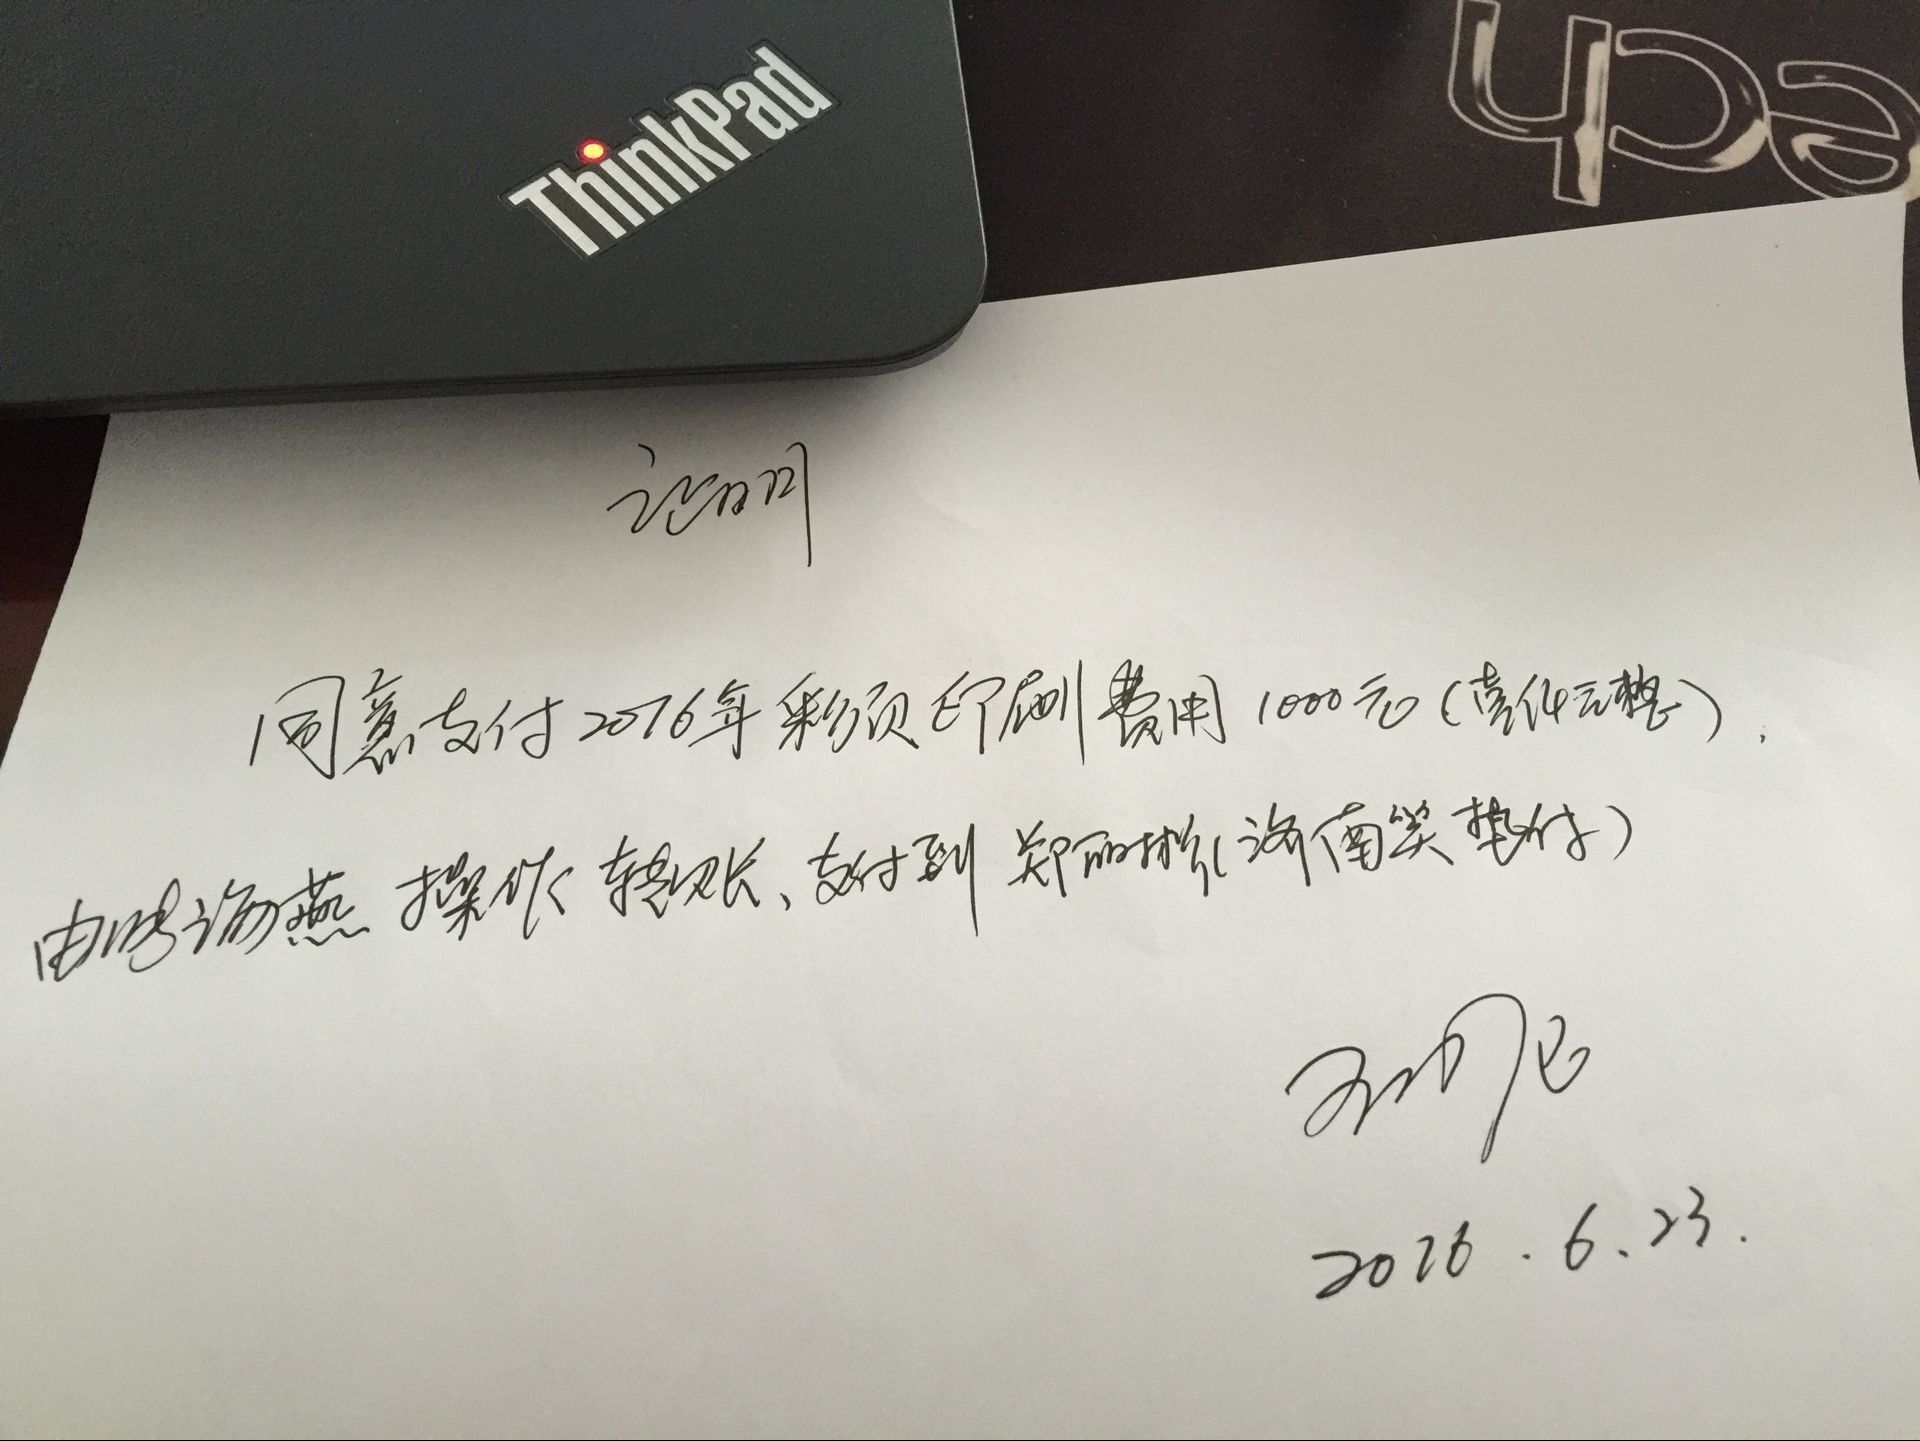 ThinkPad
ech
证明
同意支付2016年彩页印刷费用1000元(壹仟元整),
由 燕操作转账、支付到郑丽 (济南 垫付)
2016.6.23.